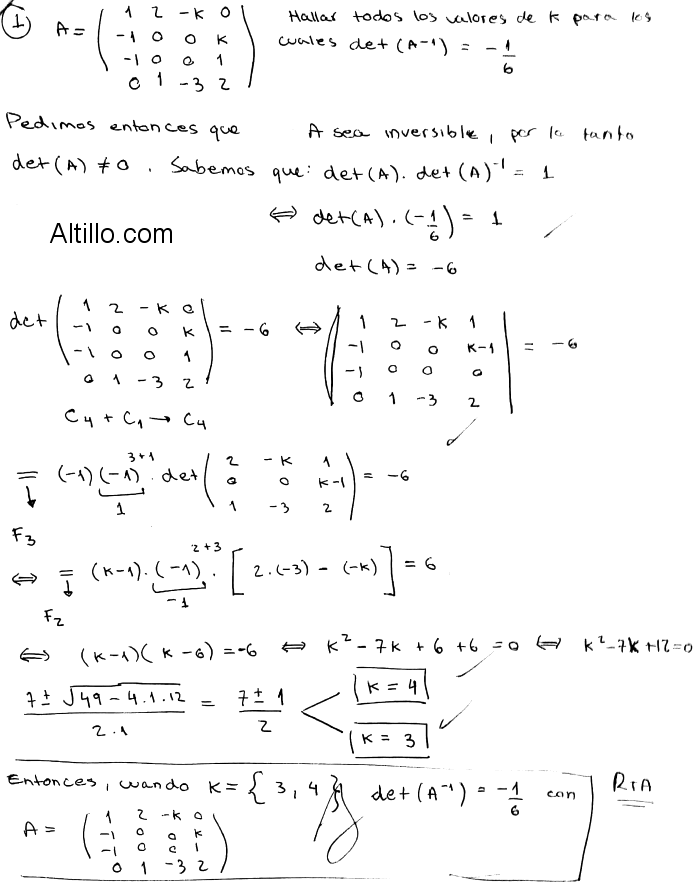 ① A = ( 1 2 -K 0 Hallar todos los valores de k para los
-1 0 0 K cuales det(A-1) = -1/6
-1 0 0 1
0 1 -3 2 )
Pedimos entonces que A sea inversible, por lo tanto
det(A) ≠ 0. Sabemos que: det(A). det(A)^-1 = 1
⇔ det(A). (-1/6) = 1
Altillo.com
det(A) = -6
det ( 1 2 -K 0 | -1 0 0 K | -1 0 0 1 | 0 1 -3 2 ) = -6 ⇔ | 1 2 -K 1 | -1 0 0 K-1 | -1 0 0 0 | 0 1 -3 2 | = -6
C4 + C1 → C4
= (-1) (-1)^3+1 . det ( 2 -K 1 | 0 0 K-1 | 1 -3 2 ) = -6
↓ 1
F3
⇔ = (K-1). (-1)^2+3 . [ 2.(-3) - (-K) ] = 6
↓ -1
F2
⇔ (K-1)(K-6) = -6 ⇔ K² - 7K + 6 + 6 = 0 ⇔ K² - 7K + 12 = 0
7 ± √49 - 4.1.12 / 2.1 = 7 ± 1 / 2 < K = 4
K = 3
Entonces, cuando K = { 3, 4 } det(A^-1) = -1/6 con RTA
A = ( 1 2 -K 0
-1 0 0 K
-1 0 0 1
0 1 -3 2 )